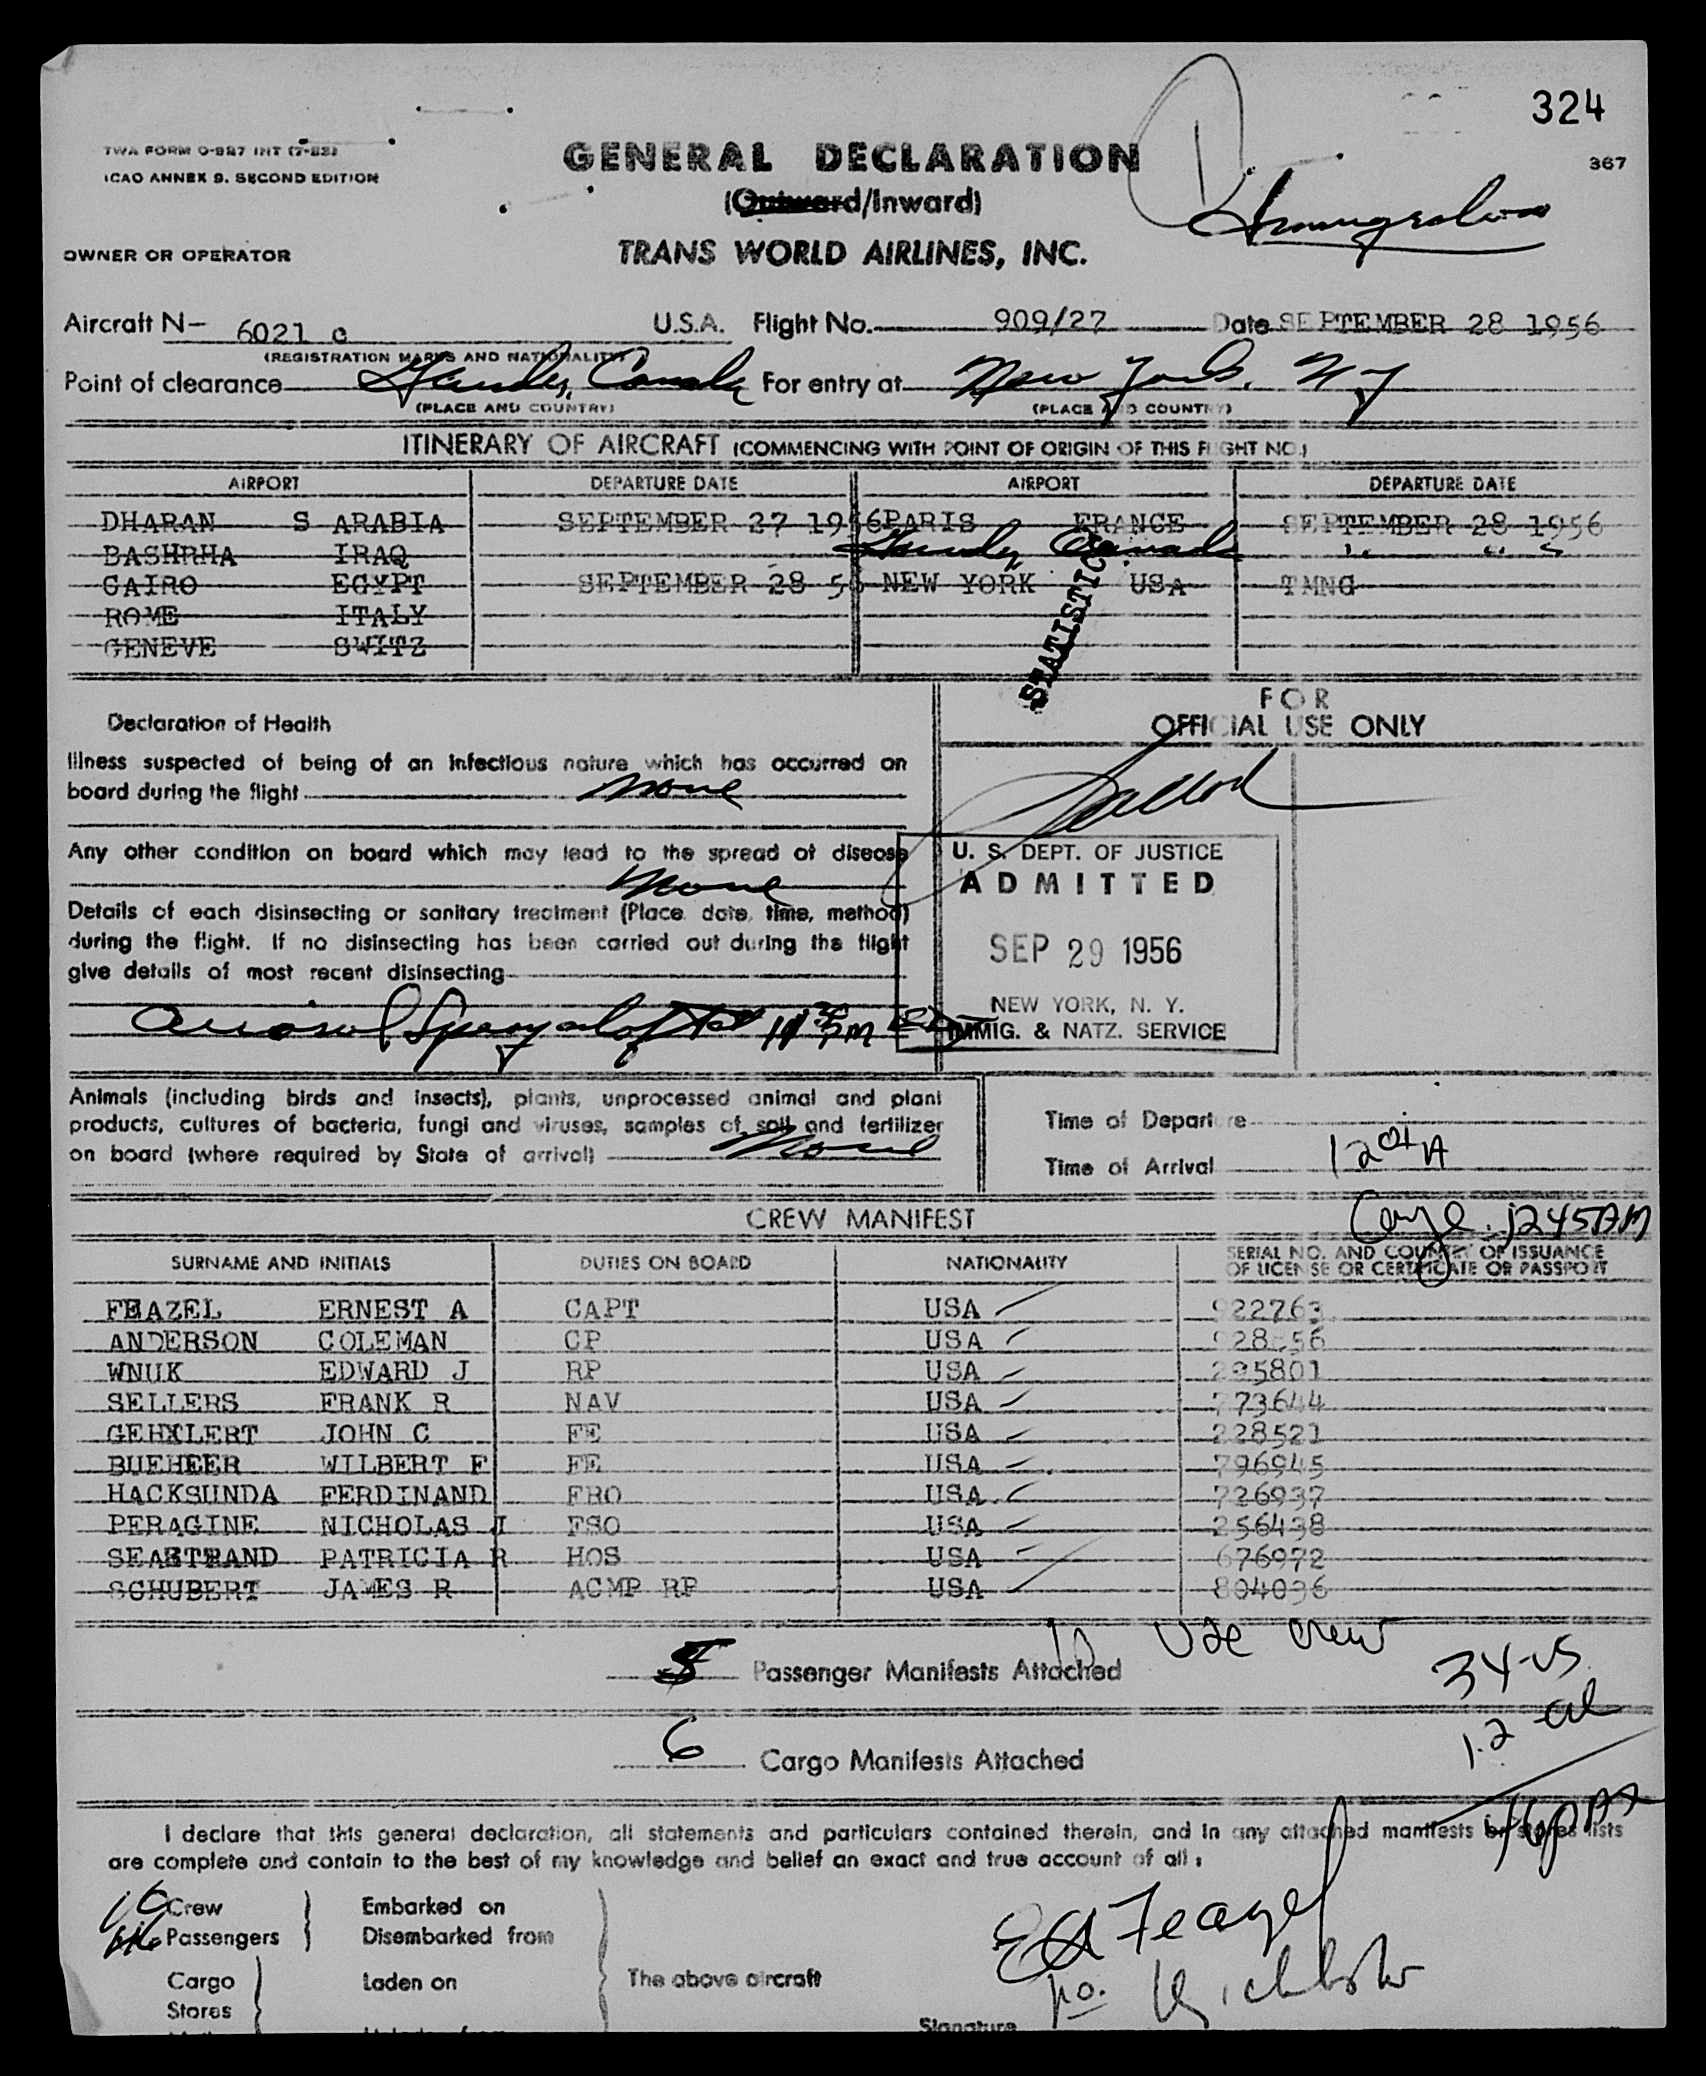 324
TWA FORM O-987 INT
ICAO ANNEX 9. SECOND EDITION
GENERAL DECLARATION
367
(Outward/Inward)
Immigration
OWNER OR OPERATOR
TRANS WORLD AIRLINES, INC.
Aircraft N- 6021 c U.S.A. Flight No. 909/27 Date SEPTEMBER 28 1956
(REGISTRATION MARKS AND NATIONALITY)
Point of clearance Gander, Canada For entry at New York, NY
(PLACE AND COUNTRY) (PLACE AND COUNTRY)
ITINERARY OF AIRCRAFT (COMMENCING WITH POINT OF ORIGIN OF THIS FLIGHT NO.)
AIRPORT DEPARTURE DATE AIRPORT DEPARTURE DATE
DHARAN S ARABIA SEPTEMBER 27 1956 PARIS FRANCE SEPTEMBER 28 1956
BASHRHA IRAQ Gander Canada " " "
CAIRO EGYPT SEPTEMBER 28 56 NEW YORK USA TMNG
ROME ITALY
GENEVE SWITZ
STATISTICS
FOR
OFFICIAL USE ONLY
Declaration of Health
Illness suspected of being of an infectious nature which has occurred on
board during the flight None
Any other condition on board which may lead to the spread of disease
None
Details of each disinsecting or sanitary treatment (Place, date, time, method)
during the flight. If no disinsecting has been carried out during the flight
give details of most recent disinsecting
U. S. DEPT. OF JUSTICE
ADMITTED
SEP 29 1956
NEW YORK, N. Y.
IMMIG. & NATZ. SERVICE
Aerosol Spray
Animals (including birds and insects), plants, unprocessed animal and plant
products, cultures of bacteria, fungi and viruses, samples of soil and fertilizer
on board (where required by State of arrival) None
Time of Departure
Time of Arrival 1201A
CREW MANIFEST
1245AM
SURNAME AND INITIALS DUTIES ON BOARD NATIONALITY SERIAL NO. AND COUNTRY OF ISSUANCE
OF LICENSE OR CERTIFICATE OR PASSPORT
FEAZEL ERNEST A CAPT USA 922763
ANDERSON COLEMAN CP USA
WNUK EDWARD J RP USA 295801
SELLERS FRANK R NAV USA 773644
GEHXLERT JOHN C FE USA 228521
BUEHEER WILBERT F FE USA 796945
HACKSUNDA FERDINAND FRO USA 726937
PERAGINE NICHOLAS J FSO USA 256438
SEASTRAND PATRICIA R HOS USA 676972
SCHUBERT JAMES R ACMP RP USA 804036
10 USC Crew
5 Passenger Manifests Attached
34 US
12 al
6 Cargo Manifests Attached
46 pax
I declare that this general declaration, all statements and particulars contained therein, and in any attached manifests or stores lists
are complete and contain to the best of my knowledge and belief an exact and true account of all :
10 Crew Embarked on
46 Passengers Disembarked from
EA Feazel
Cargo Laden on The above aircraft
Stores
Signature